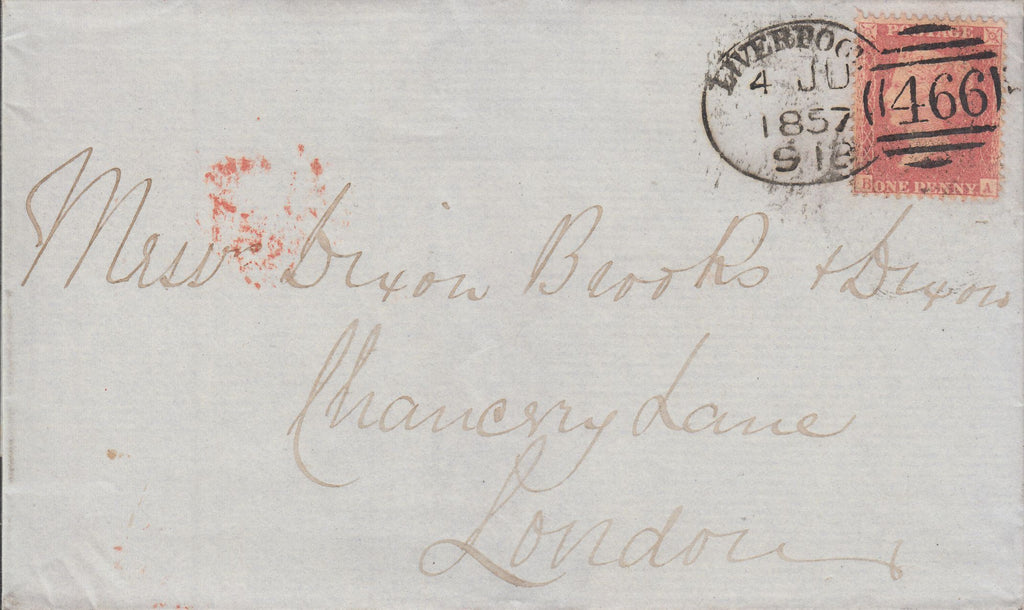 LIVERPOO
4 JU
1857
91B
466
POSTAGE
B ONE PENNY A
Messrs Dixon Brooks + Dixon
Chancery Lane
London